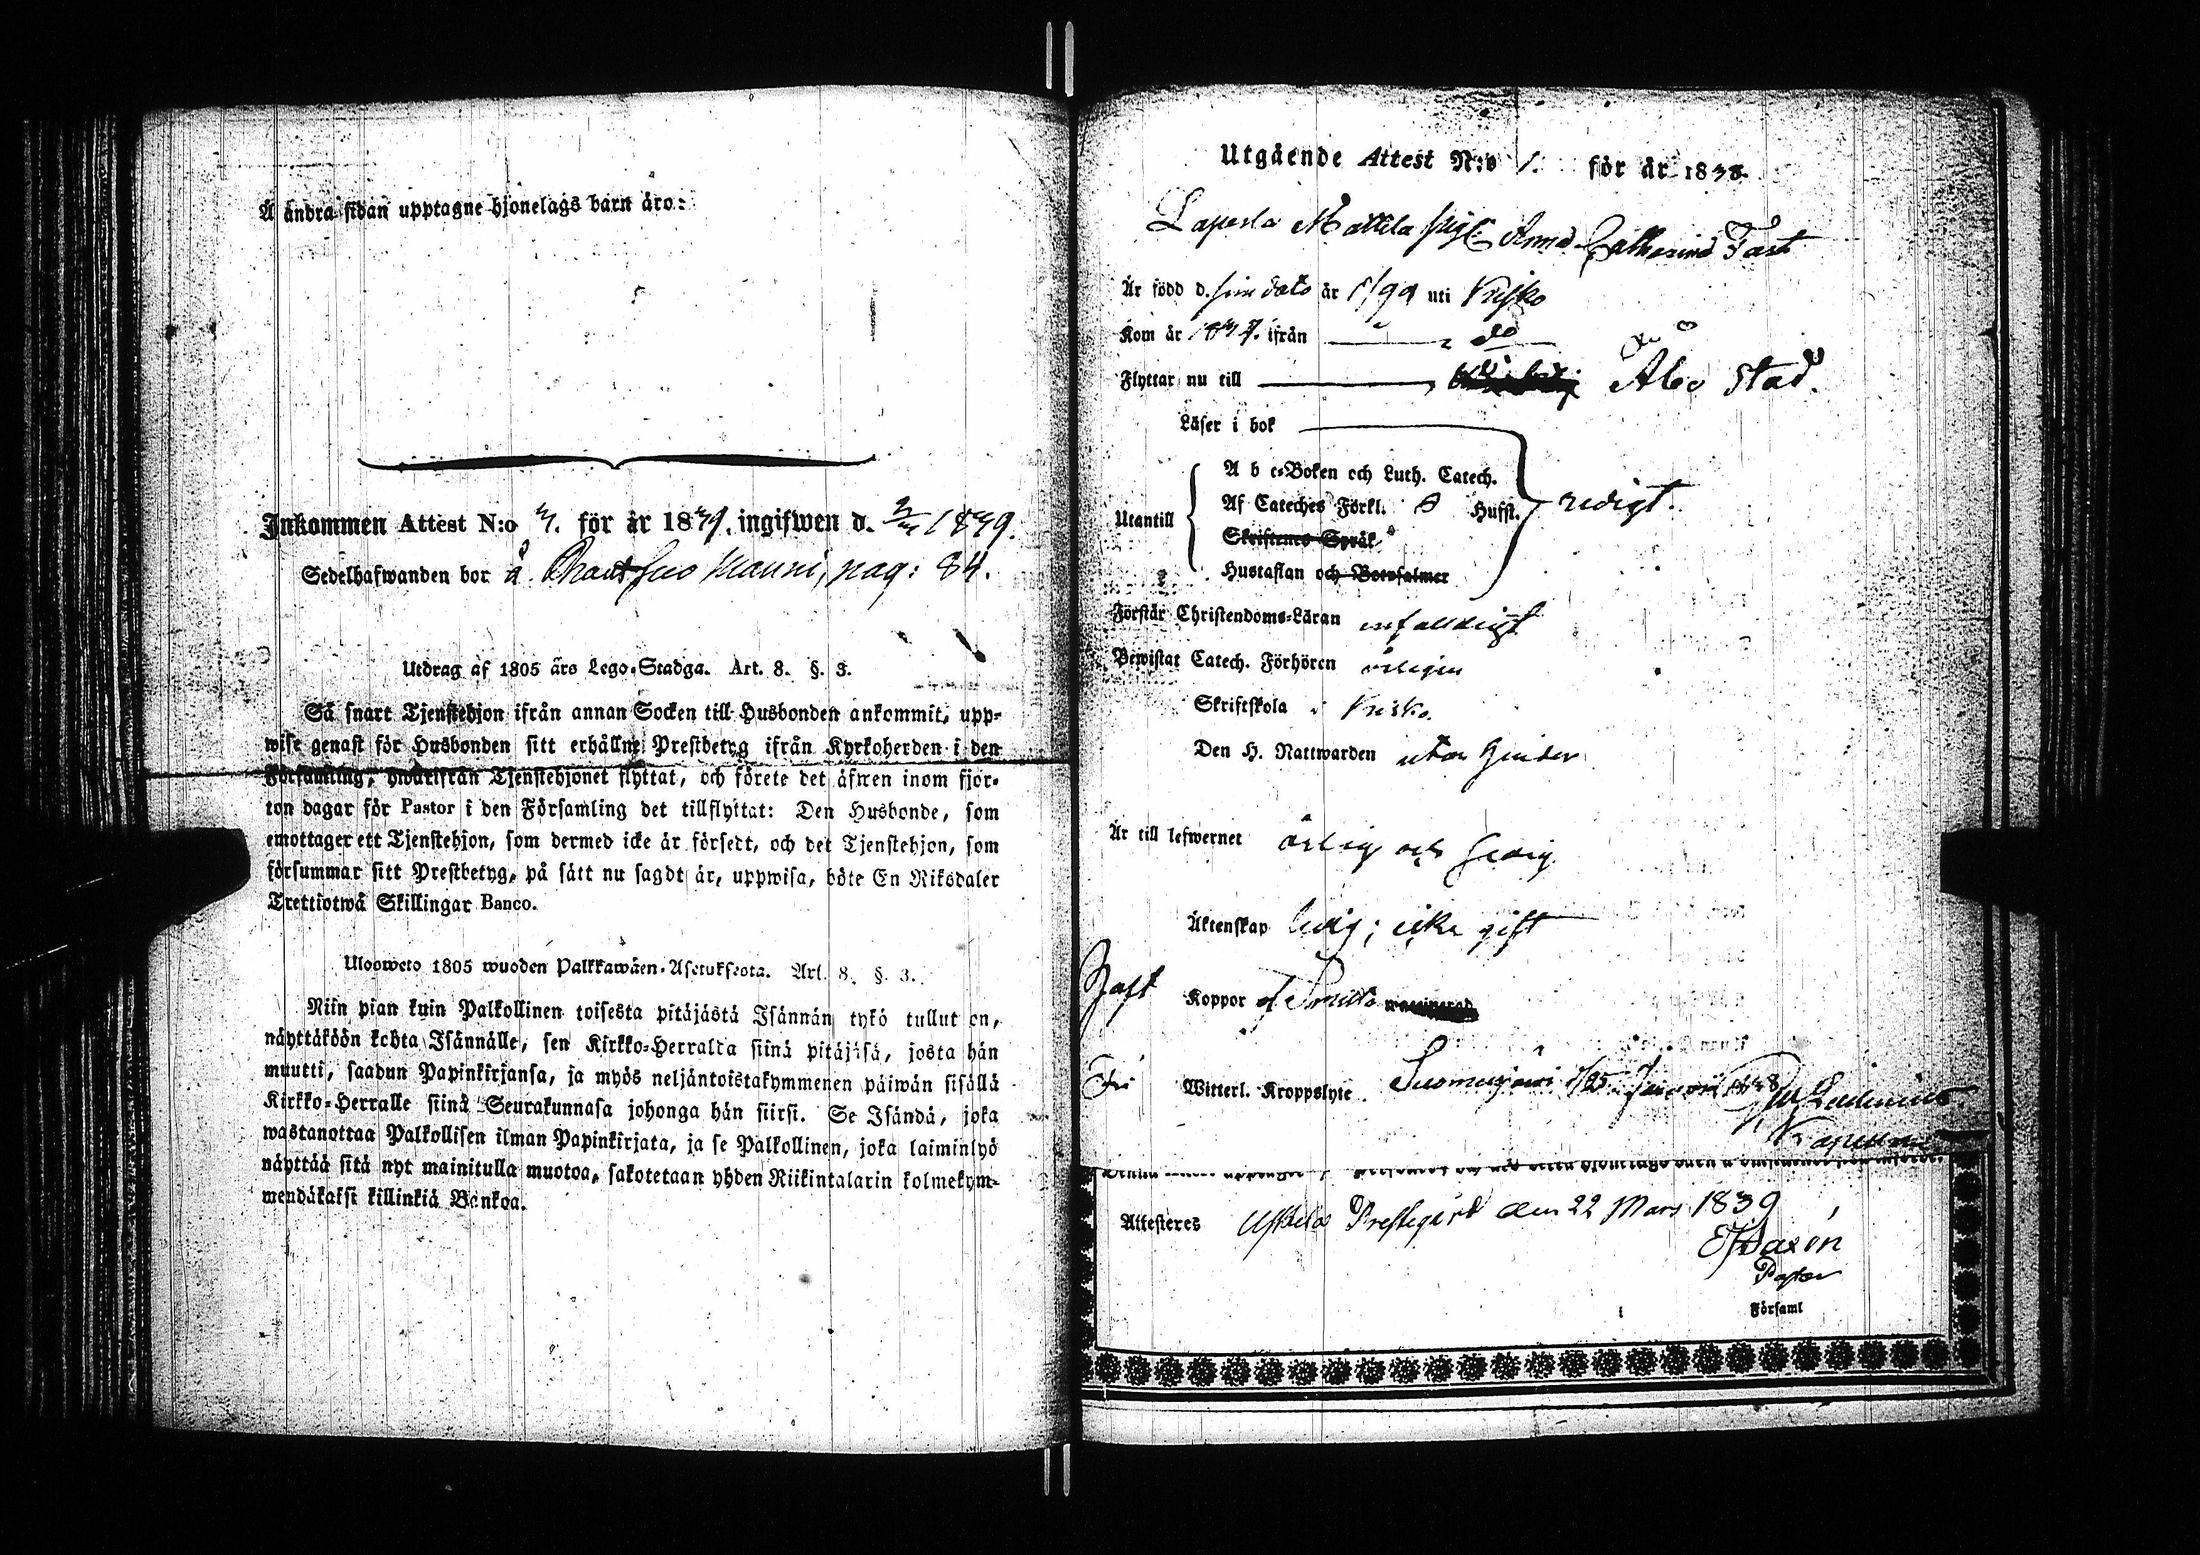 Å andra sidan upptagne hjonelags barn äro:
Inkommen Attest N:o 3. för år 1839. ingifwen d. 1839.
Sedelhafwanden bor å Nanni, pag: 84.
Utdrag af 1805 års Lego-Stadga. Art. 8. §. 3.
Så snart Tjenstehjon ifrån annan Socken till Husbonden ankommit, upp-
wise genast för Husbonden sitt erhållne Prestbetyg ifrån Kyrkoherden i den
Församling, hwarifrån Tjenstehjonet flyttat, och förete det äfwen inom fjor-
ton dagar för Pastor i den Församling det tillflyttat: Den Husbonde, som
emottager ett Tjenstehjon, som dermed icke är försedt, och det Tjenstehjon, som
försummar sitt Prestbetyg, på sätt nu sagdt är, uppwisa, böte En Riksdaler
Trettiotwå Skillingar Banco.
Ulosweto 1805 wuoden Palkkawäen-Asetuksesta. Art. 8. §. 3.
Niin pian kuin Palkollinen toisesta pitäjästä Isännän tykö tullut on,
näyttäköön kohta Isännälle, sen Kirkko-Herralta siinä pitäjäsä, josta hän
muutti, saadun Papinkirjansa, ja myös neljäntoistakymmenen päiwän sisällä
Kirkko-Herralle siinä Seurakunnasa johonga hän siirsi. Se Isändä, joka
wastanottaa Palkollisen ilman Papinkirjata, ja se Palkollinen, joka laiminlyö
näyttää sitä nyt mainitulla muotoa, sakotetaan yhden Riikintalarin kolmekym-
mendäkaksi killinkiä Bankoa.
Utgående Attest N:o 1. för år 1838.
Laperla Mattila pig. Anna Catharina Fast
Är född d. sine dato år 1799 uti Kisko
Kom år 1837. ifrån do
Flyttar nu till Åbo Stad.
Läser i bok
A b c-Boken och Luth. Catech.
Utantill Af Cateches Förkl. Husst. redigt.
Skriftenes Språk
Hustaflan och Botpsalmer
Förstår Christendoms-Läran enfaldigt
Bewistat Catech. Förhören årligen
Skriftskola i Kisko.
Den H. Nattwarden utan hinder
Är till lefwernet ärlig och
Äktenskap ledig; icke gift
Haft Koppor
Fri Witterl. Kroppslyte Suomusjärvi 25 1838
Attesteres Uskela Prestegård den 22 Mars 1839
Pastor
Församl